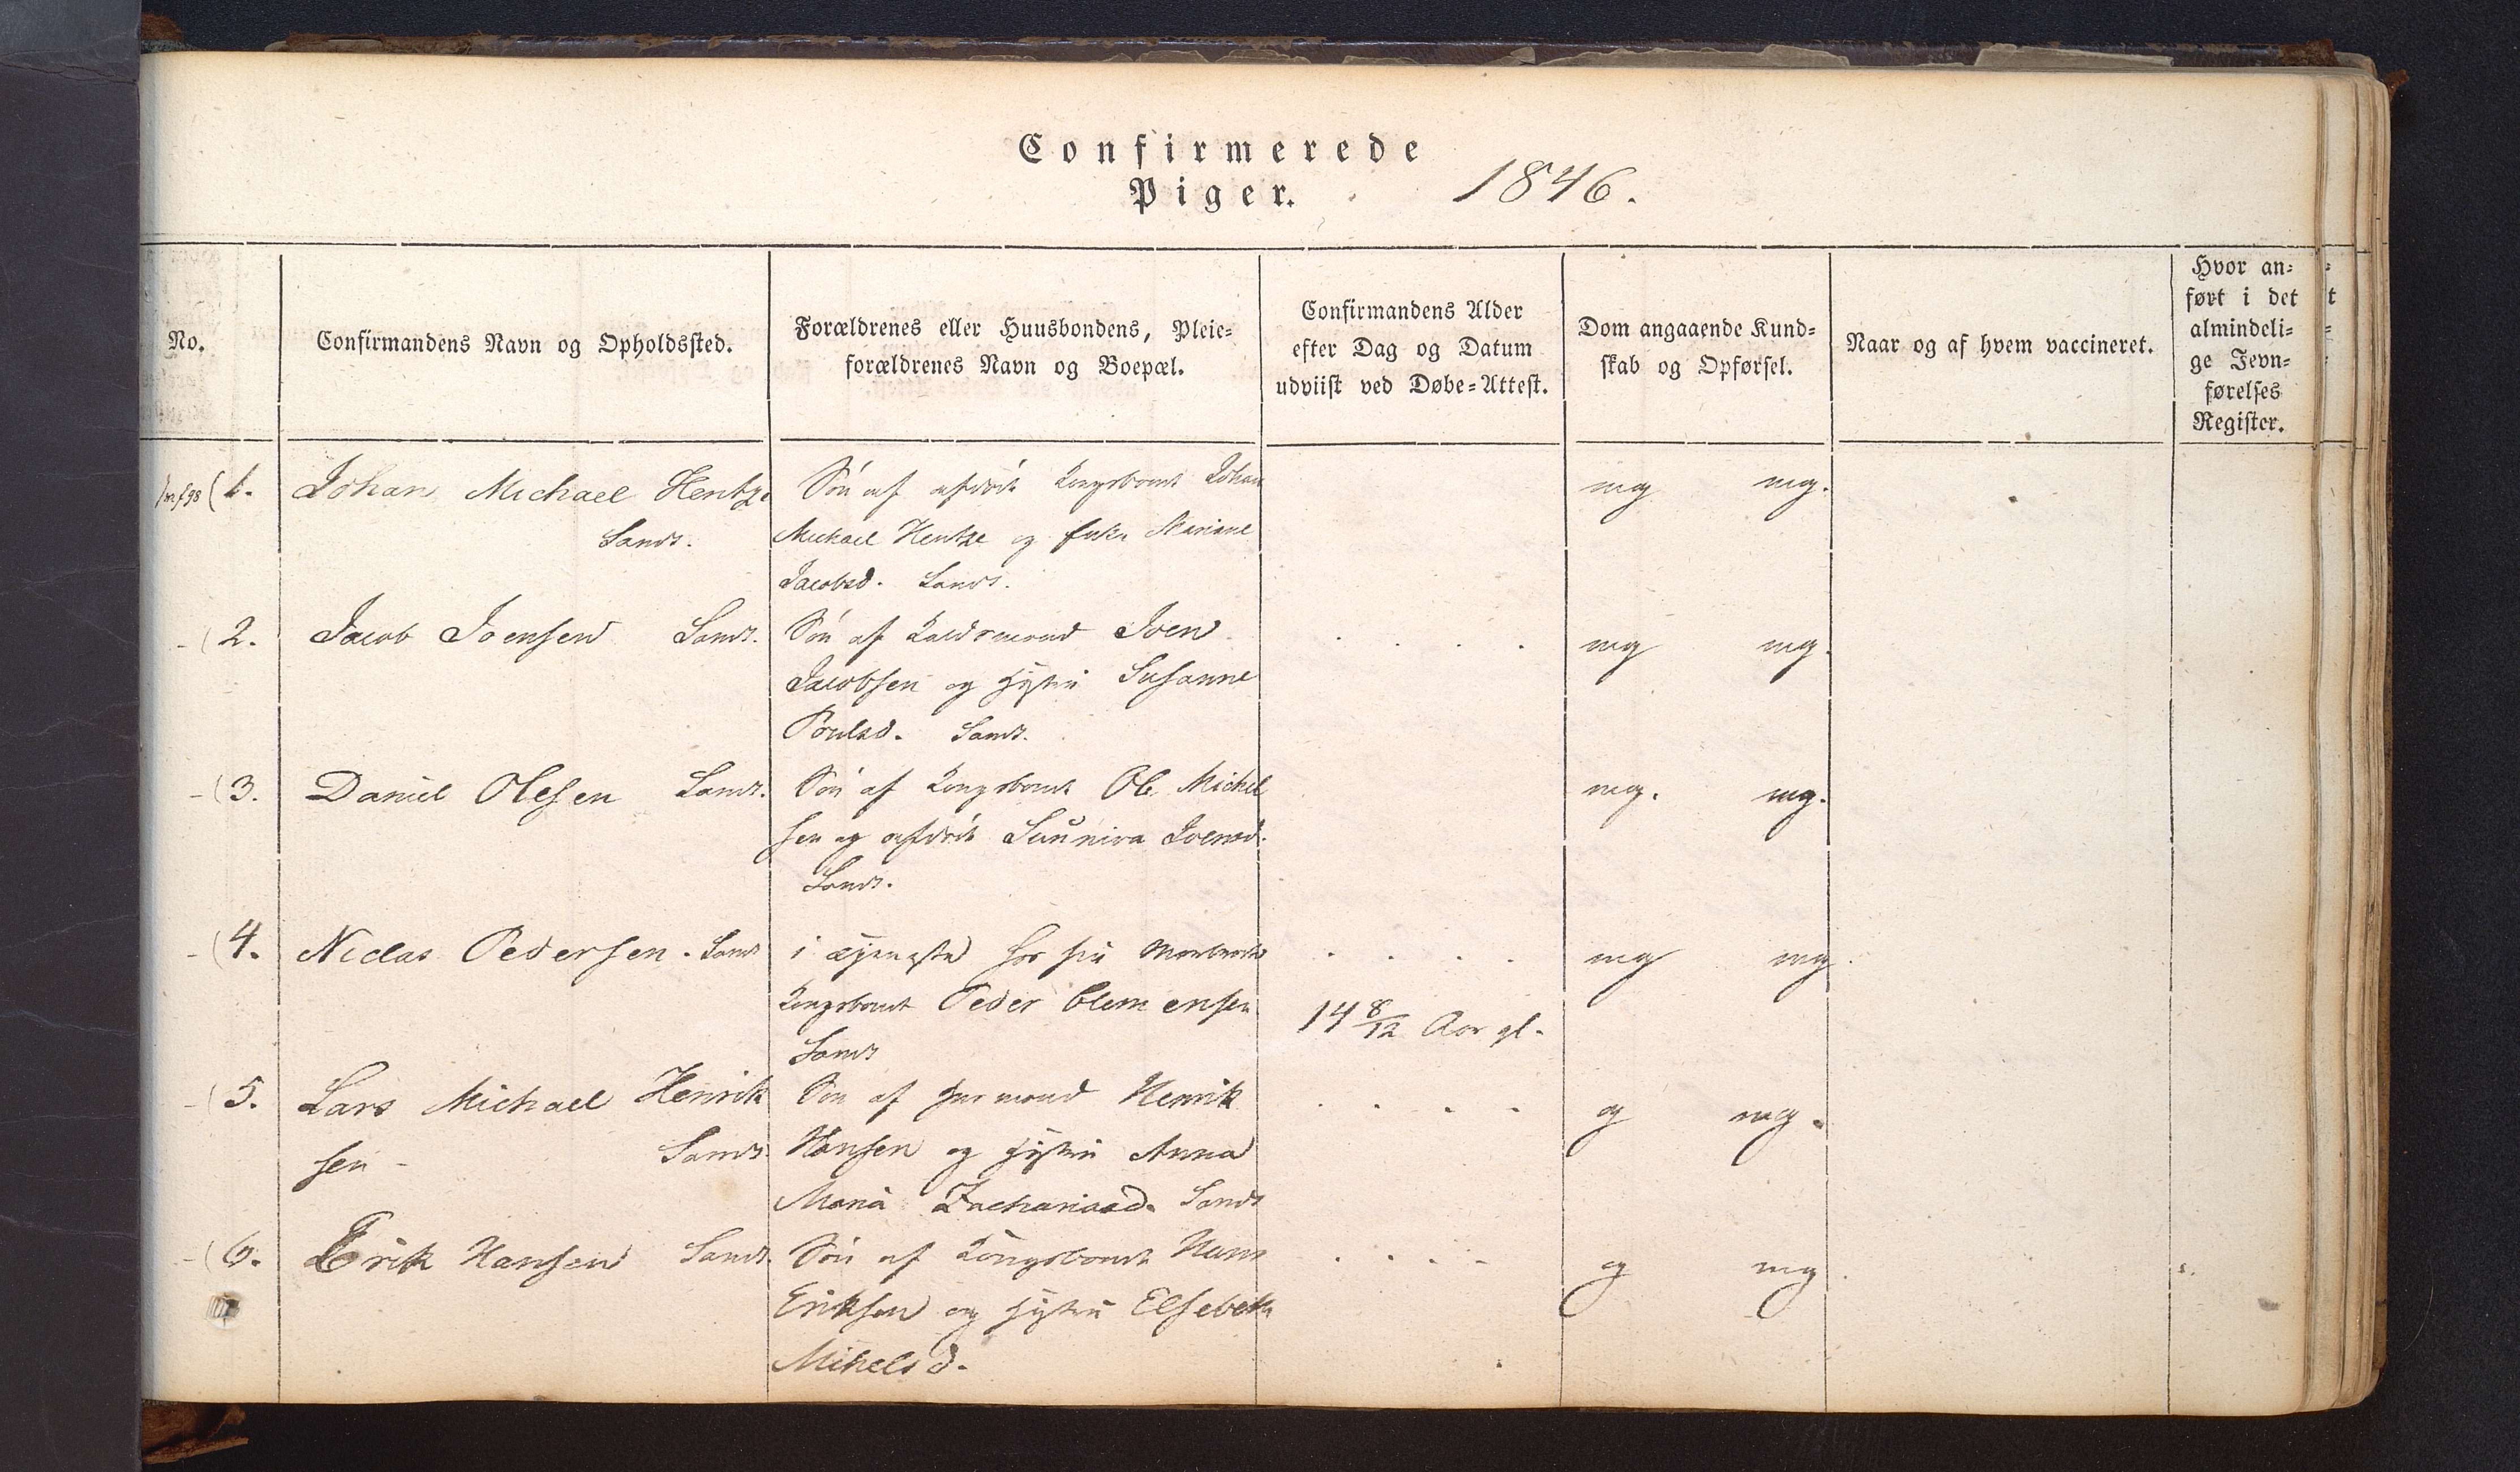 Confirmerede
Piger. 1846.
No.
Confirmandens Navn og Opholdssted.
Forældrenes eller Huusbondens, Pleie-
forældrenes Navn og Boepæl.
Confirmandens Alder
efter Dag og Datum
udviist ved Døbe-Attest.
Dom angaaende Kund-
skab og Opførsel.
Naar og af hvem vaccineret.
Hvor an-
ført i det
almindeli-
ge Jevn-
førelses
Register.
1. Johan Michael Hentze
Sand.
Søn af afdøde Kongsbonde Johan
Michael Hentze og Enke Mariane
Jacobsd. Sand.
mg mg.
2. Jacob Joensen Sand.
Søn af Joen
Jacobsen og Hustru Susanne
Poulsd. Sand.
mg mg.
3. Daniel Olesen Sand.
Søn af Kongsbonde Ole Michel
sen og afdøde Sunniva Joensd.
Sand.
mg. mg.
4. Niclas Pedersen. Sand
i Tjeneste hos sin Morbroder
Kongsbonde Peder Clemensen
Sand
14 8/12 Aar gl.
mg mg.
5. Lars Michael Henrik
sen - Sand.
Søn af Huusmand Henrik
Hansen og Hustru Anna
Maria Zachariasd. Sand
g mg.
6. Erik Hansen Sand.
Søn af Kongsbonde Hans
Eriksen og Hustru Elsebeth
Michelsd.
g mg.